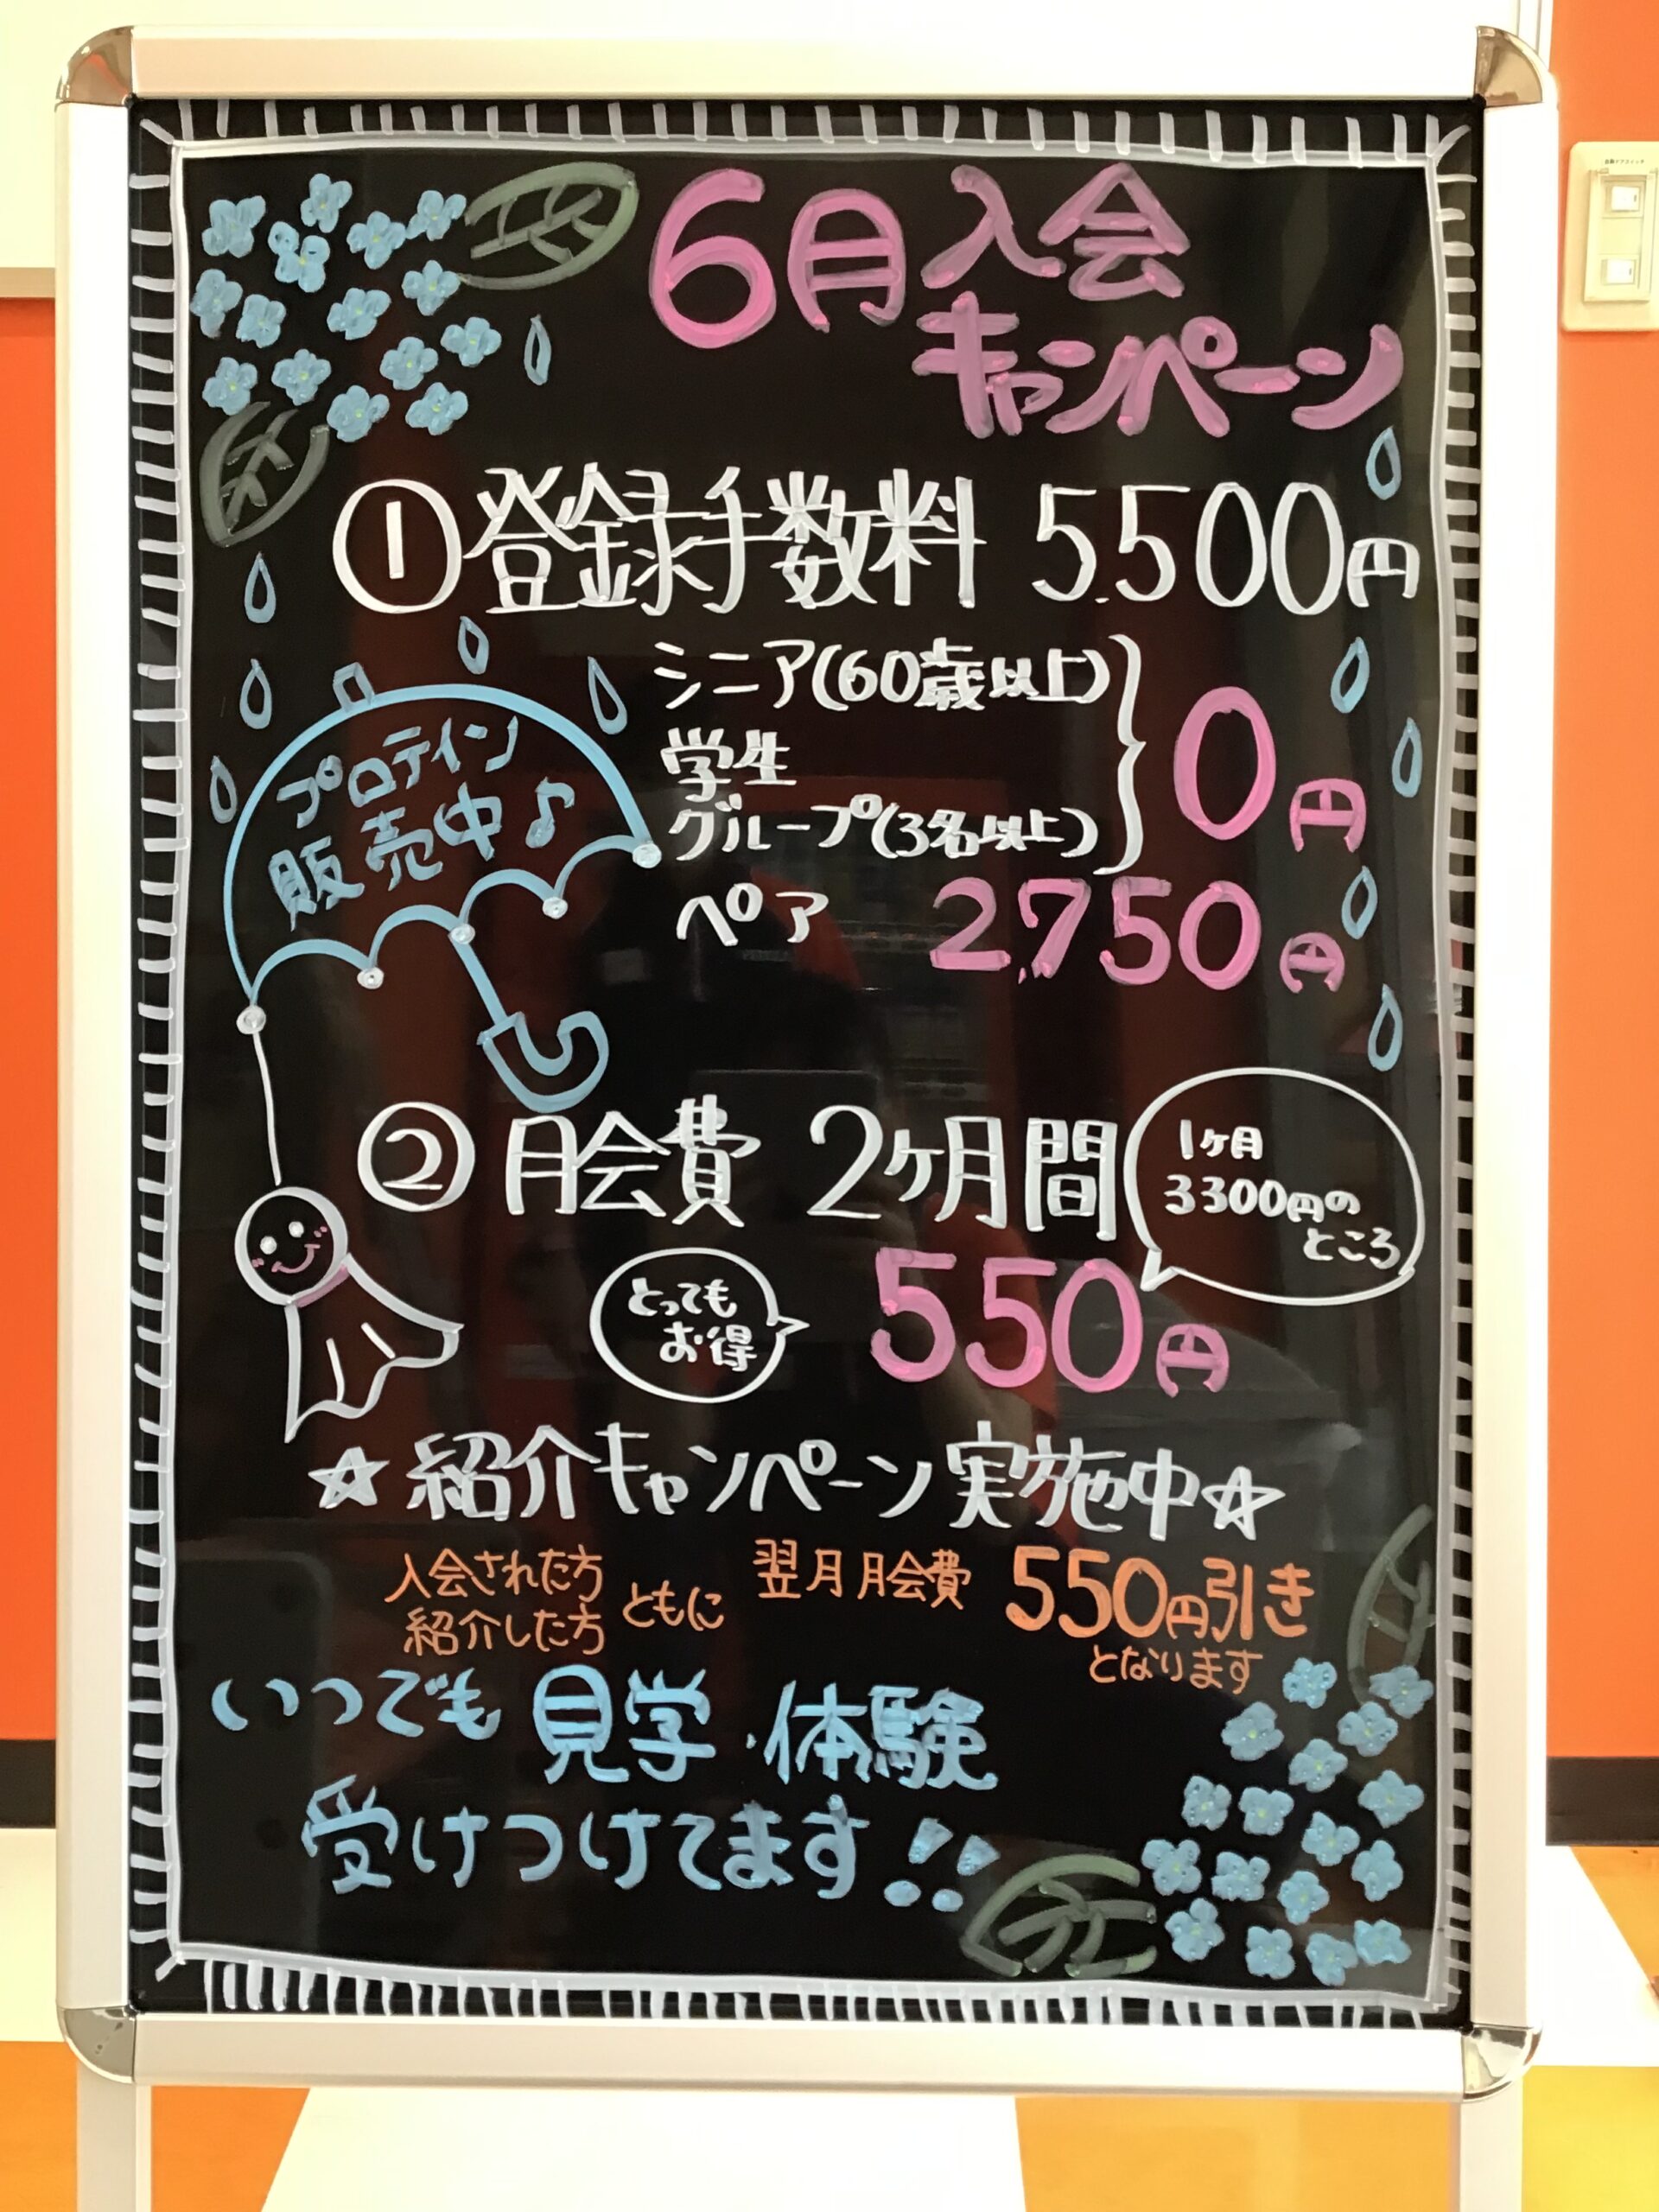 6月入会
キャンペーン
①登録手数料 5,500円
シニア(60歳以上)
学生
グループ(3名以上)
0円
ペア 2,750円
プロテイン
販売中♪
②月会費 2ヶ月間
1ヶ月
3300円の
ところ
とっても
お得
550円
☆紹介キャンペーン実施中☆
入会された方
紹介した方
ともに
翌月月会費 550円引き
となります
いつでも見学・体験
受けつけてます!!